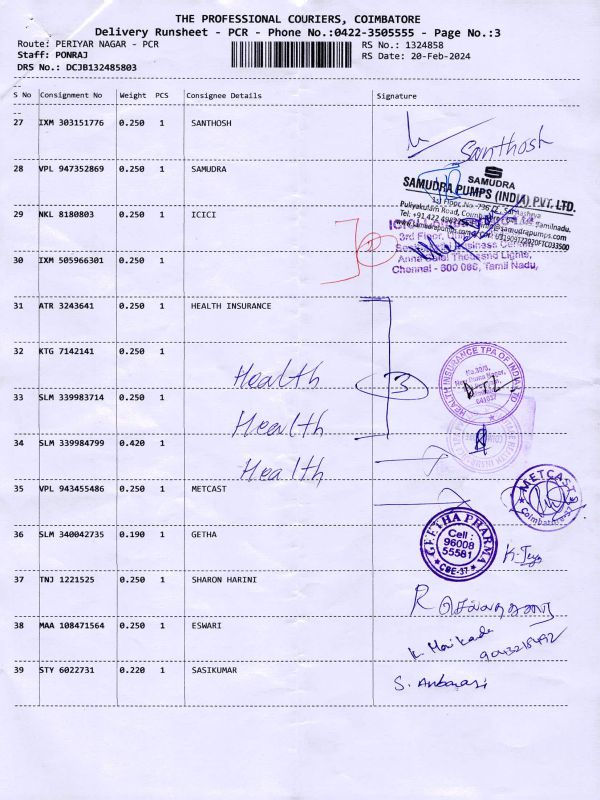 THE PROFESSIONAL COURIERS, COIMBATORE
Delivery Runsheet - PCR - Phone No.:0422-3505555 - Page No.:3
Route: PERIYAR NAGAR - PCR
RS No.: 1324858
Staff: PONRAJ
RS Date: 20-Feb-2024
DRS No.: DCJB132485803
S No Consignment No Weight PCS Consignee Details Signature
27 IXM 303151776 0.250 1 SANTHOSH
Santhosh
28 VPL 947352869 0.250 1 SAMUDRA
SAMUDRA
SAMUDRA PUMPS (INDIA) PVT. LTD.
29 NKL 8180803 0.250 1 ICICI
2
3rd Floor,
30 IXM 505966301 0.250 1
Chennai - 600 006, Tamil Nadu,
31 ATR 3243641 0.250 1 HEALTH INSURANCE
32 KTG 7142141 0.250 1
Health
3
HEALTH INSURANCE TPA OF INDIA LTD
33 SLM 339983714 0.250 1
Health
34 SLM 339984799 0.420 1
Health
35 VPL 943455486 0.250 1 METCAST
METCAST
Coimbatore-37
36 SLM 340042735 0.190 1 GETHA
GEETHA PHARMA
Cell :
96008
55581
CBE-37
37 TNJ 1221525 0.250 1 SHARON HARINI
R
38 MAA 108471564 0.250 1 ESWARI
39 STY 6022731 0.220 1 SASIKUMAR
S. Anbarasi